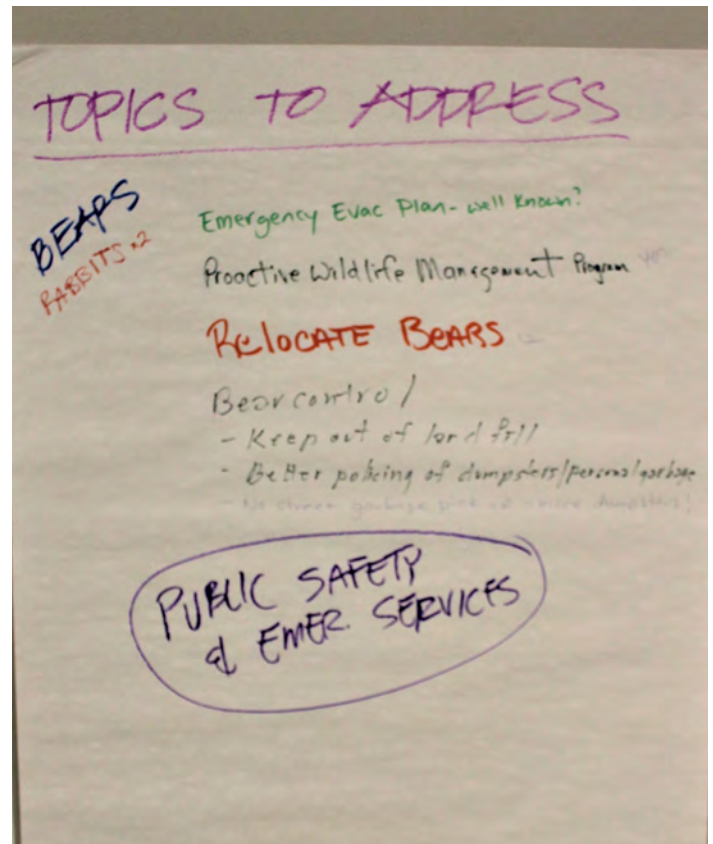 TOPICS TO ADDRESS
BEARS
RABBITS x2
Emergency Evac Plan - well known?
Proactive Wildlife Management Program yes
RELOCATE BEARS
Bear control
- Keep out of land fill
- Better policing of dumpsters/personal garbage
- No street garbage pick up - more dumpsters!
PUBLIC SAFETY
& EMER. SERVICES